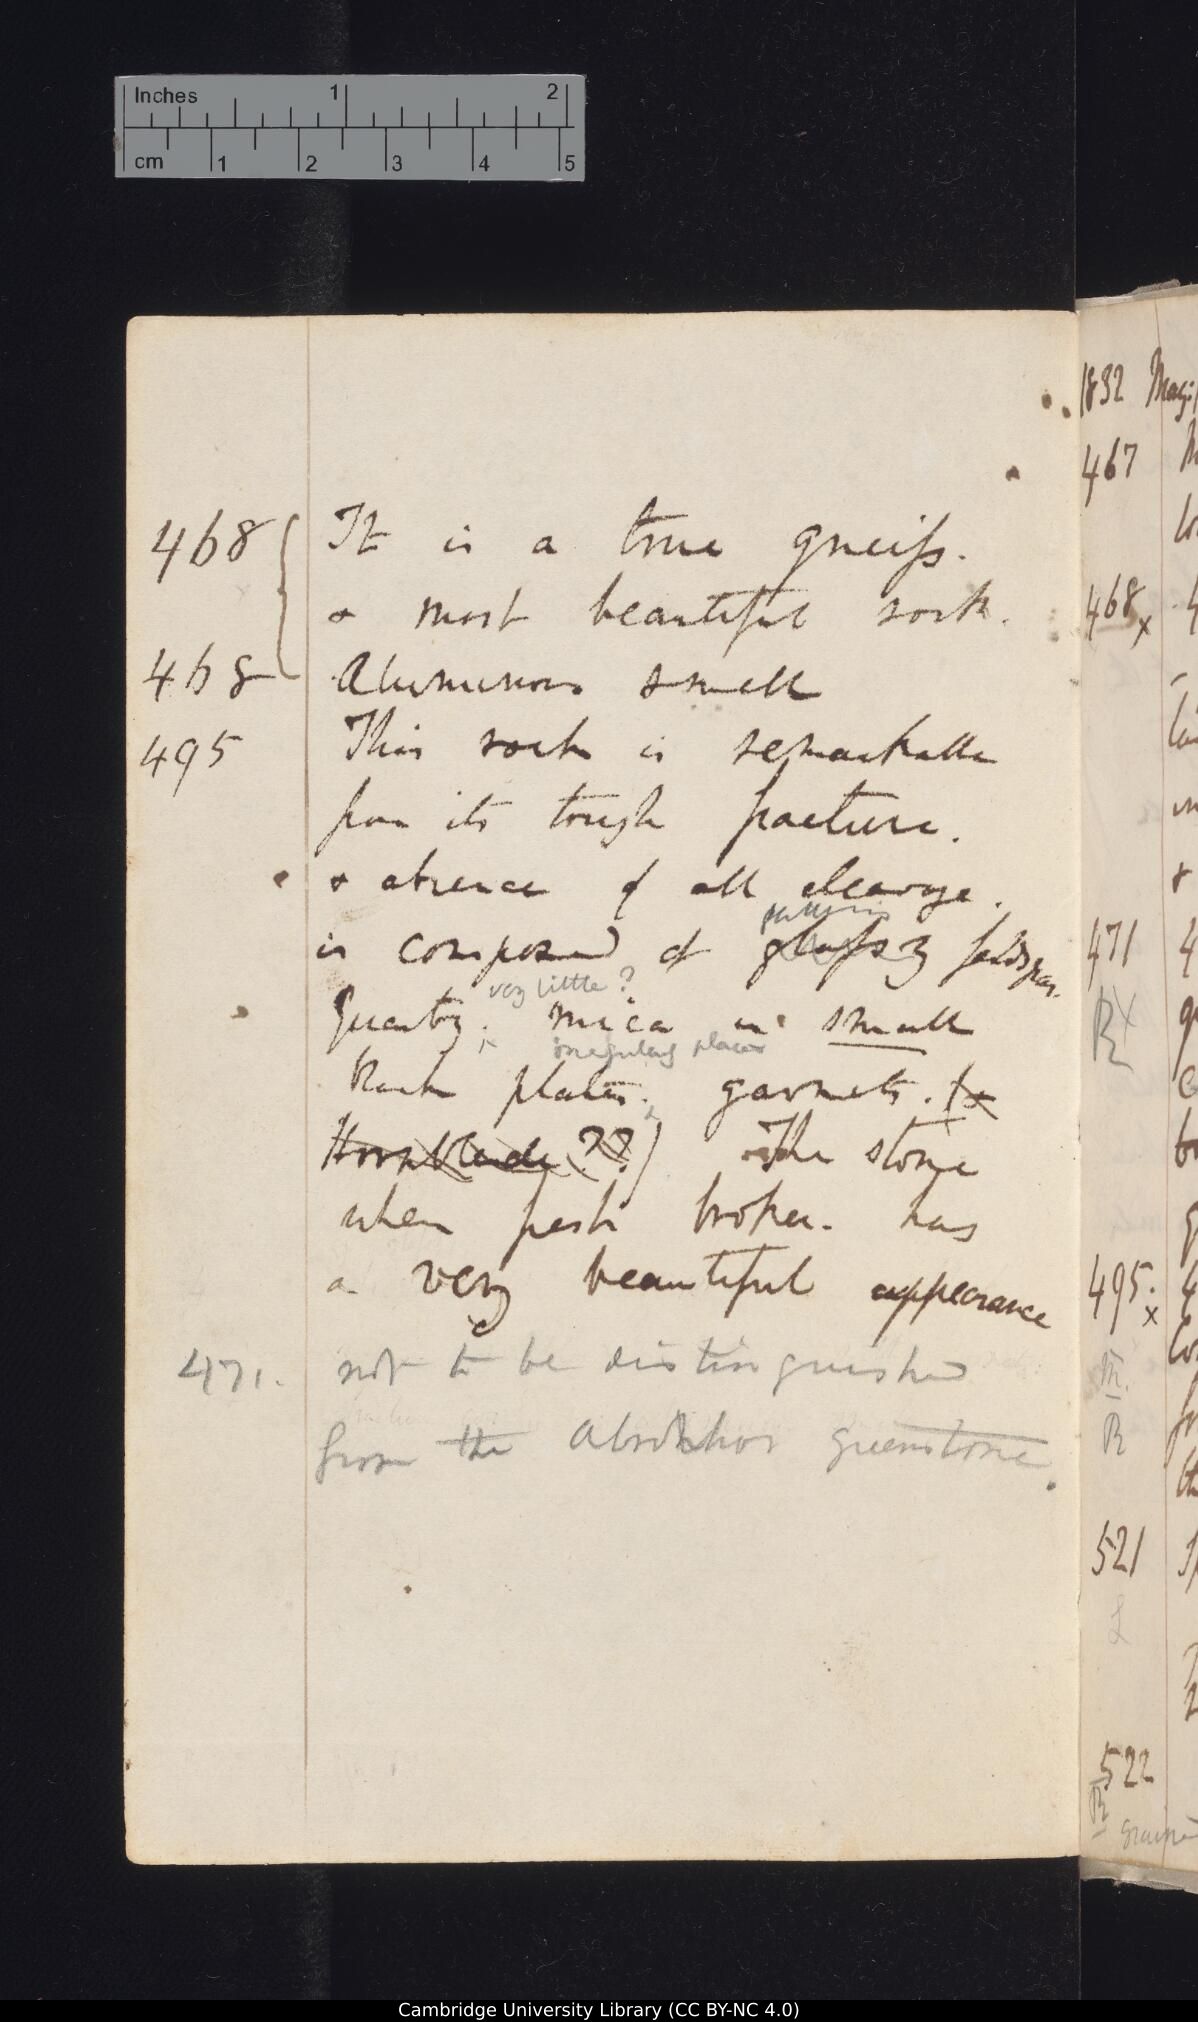 Inches 1 2
cm 1 2 3 4 5
468 It is a true gneiss.
& most beautiful rock.
468 Aluminous smell
495 This rock is remarkable
from its tough fracture.
& absence of all cleavage.
is composed of glassy feldspar.
very little?
Quartz. mica in small
irregular places
black plates. garnets. (&
Hornblende (??) The stone
when fresh broken. has
a very beautiful appearance
471. not to be distinguished
from the Abrolhos greenstone.
1832
467
468x
471
R
495.
x
R
521
522
R
Cambridge University Library (CC BY-NC 4.0)